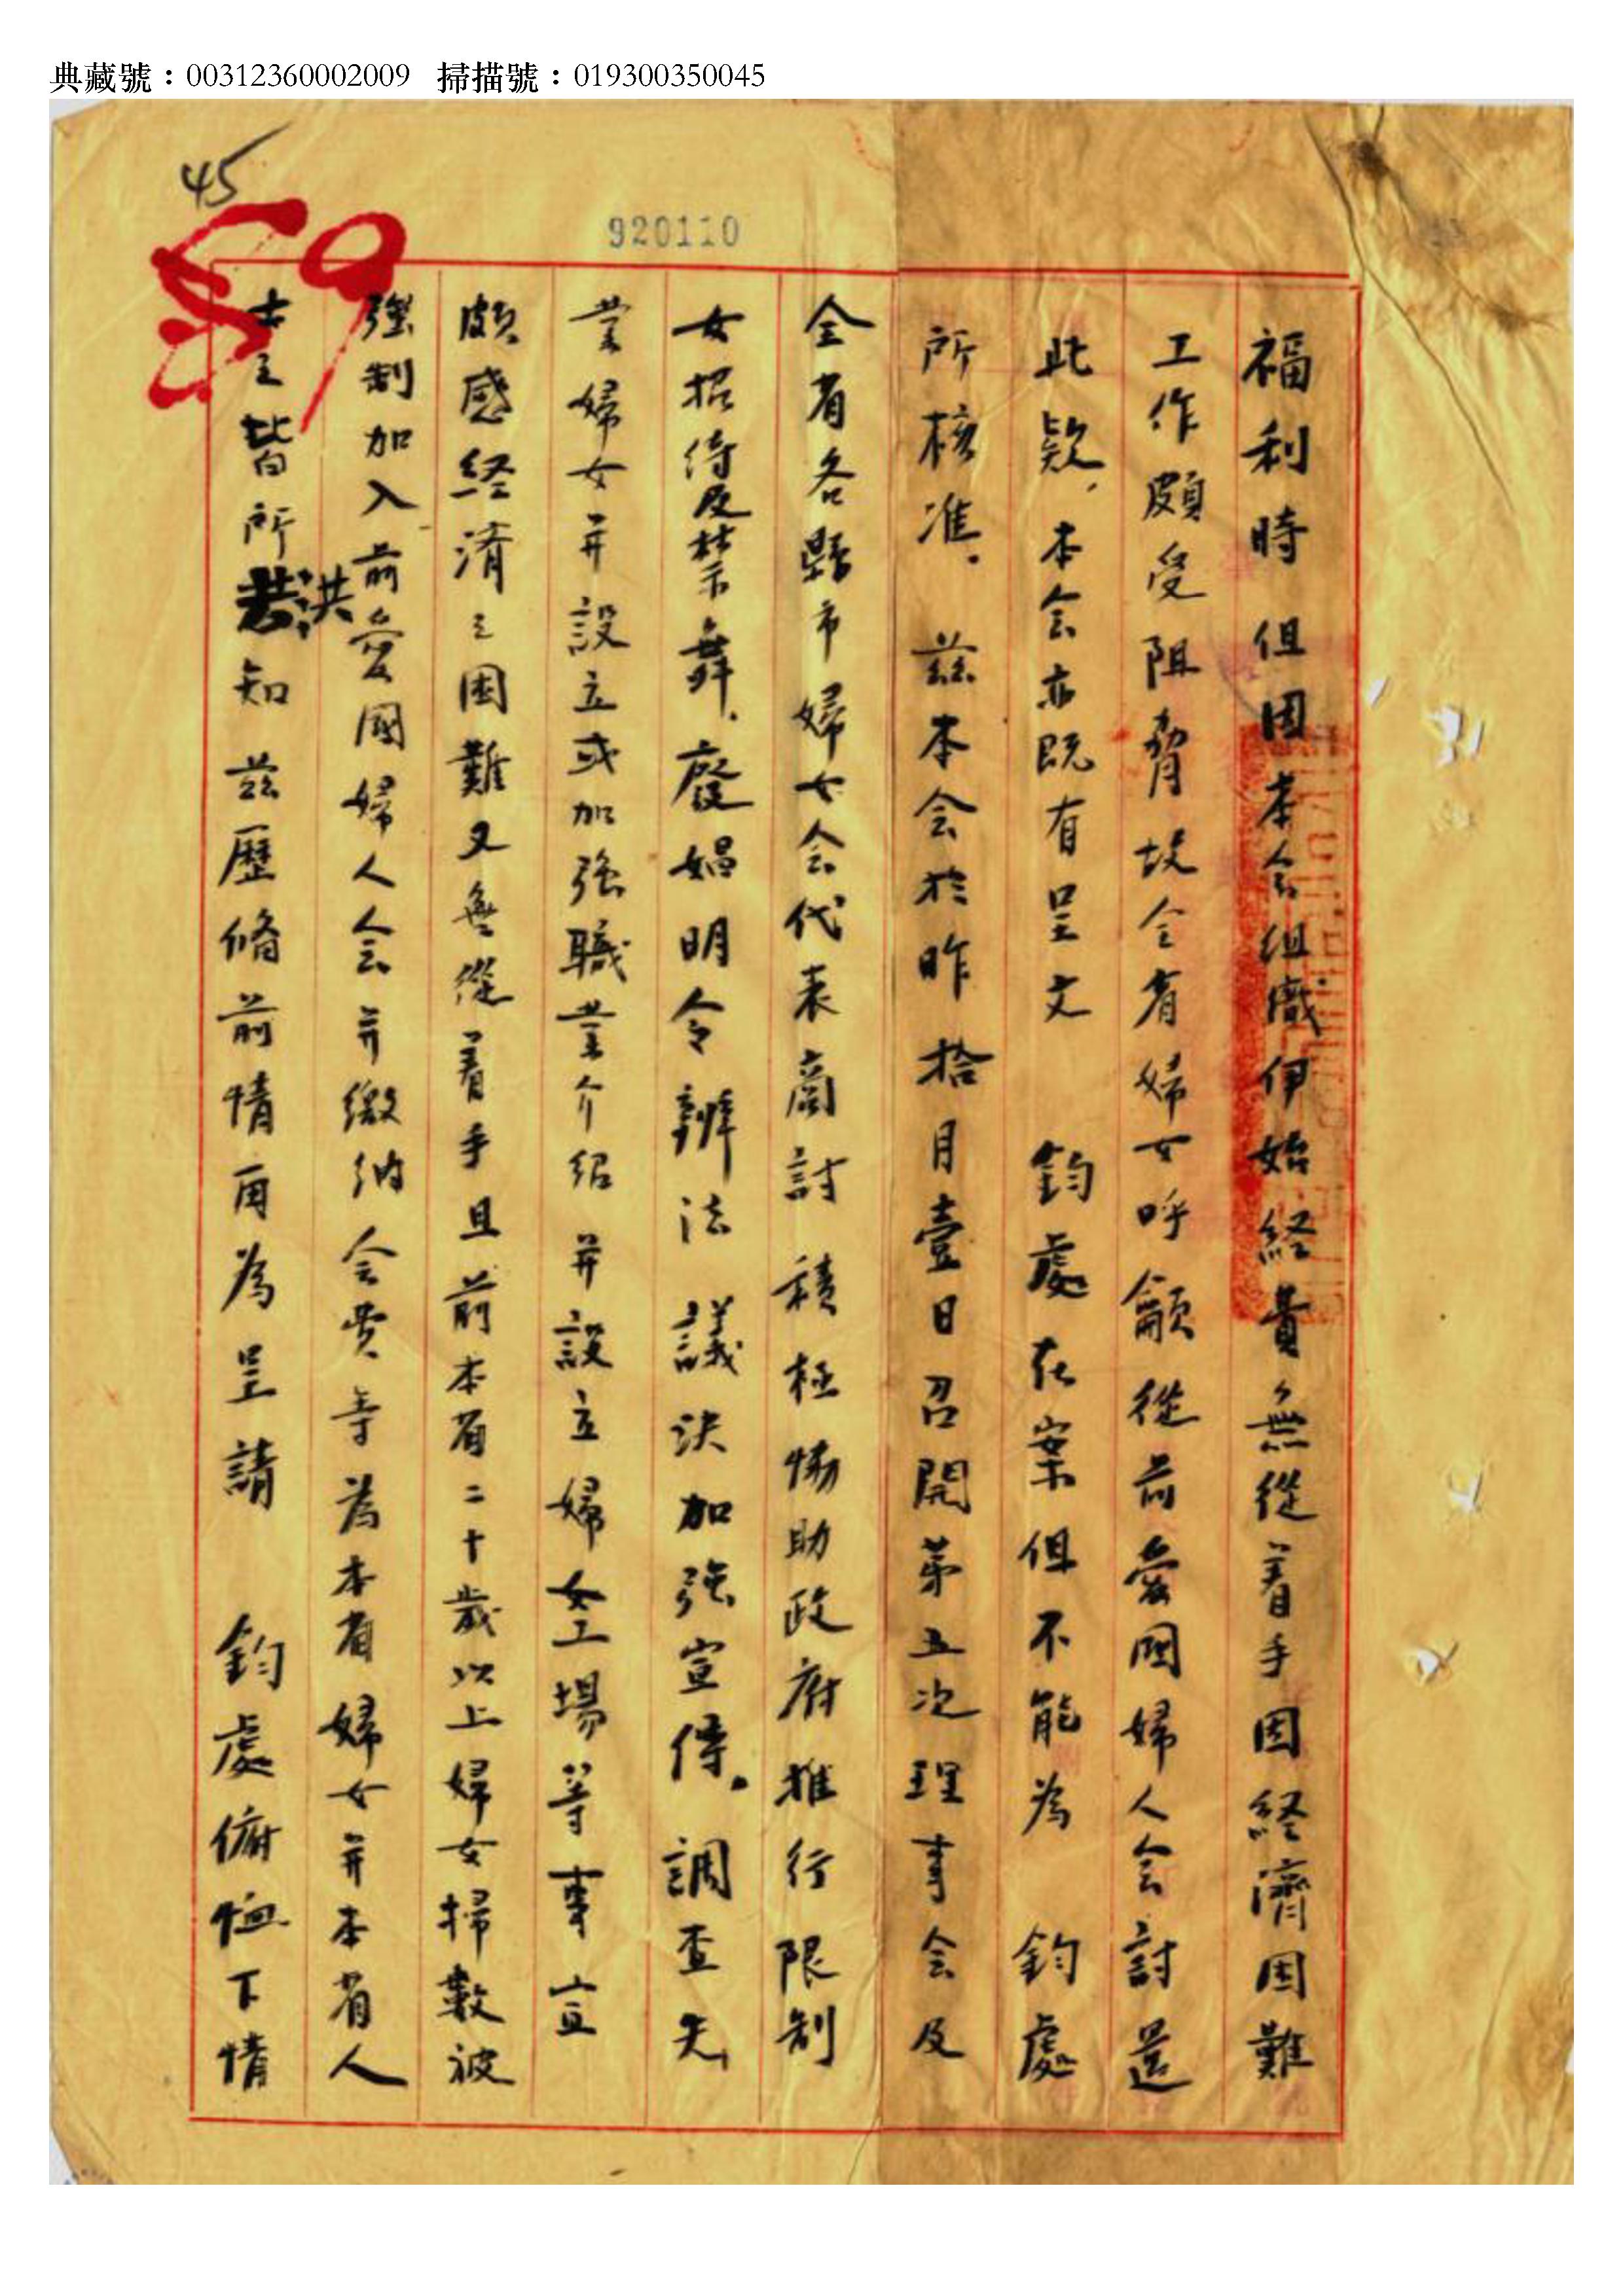 典藏號：00312360002009 掃描號：019300350045
45
59
920110
福利時但因本会組織伊始経費無從着手因経濟困難
工作頗受阻脅故全省婦女呼籲從前愛國婦人会討還
此欵，本会亦既有呈文 鈞處在案但不能為 鈞處
所核准。 茲本会於昨拾月壹日召開第五次理事会及
全省各縣市婦女会代表商討積極協助政府推行限制
女招待及禁舞．廢娼明令辦法議決加强宣傳。調查失
業婦女并設立或加强職業介紹并設立婦女工場等事宜
頗感経済之困難又無從着手且前本省二十歲以上婦女掃數被
強制加入前愛國婦人会并繳納会费等為本省婦女并本省人
士之皆所洪知茲歷脩前情再為呈請 鈞處俯恤下情